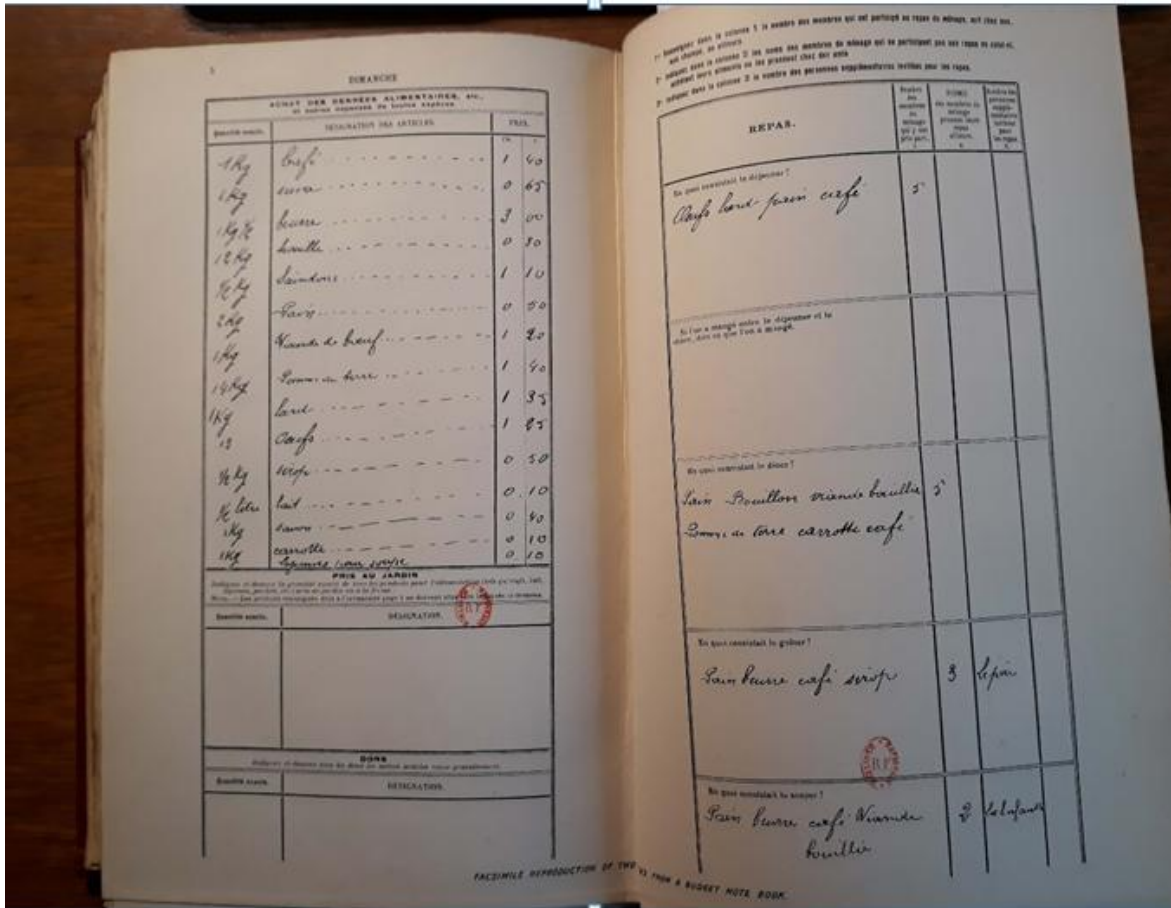 DIMANCHE
ACHAT DES DENRÉES ALIMENTAIRES, etc.,
et autres dépenses de toutes espèces.
Quantité exacte. DÉSIGNATION DES ARTICLES. PRIX.
1 Kg café 1 40
1 Kg sucre 0 65
1 Kg ½ beurre 3 00
12 Kg houille 0 30
½ Kg Saindoux 1 10
2 Kg Pain 0 50
1 Kg Viande de bœuf 1 20
Pomme de terre 1 40
1 Kg lard 1 35
12 Oeufs 1 25
½ Kg sirop 0 50
½ litre lait 0.10
1 Kg savon 0 40
1 Kg carrotte 0 10
légumes pour soupe 0. 10
PRIS AU JARDIN
Quantité exacte. DÉSIGNATION.
DONS
Quantité exacte. DÉSIGNATION.
1° Renseignez dans la colonne 1 le nombre des membres qui ont participé au repas du ménage, soit chez eux,
aux champs, ou ailleurs.
2° Indiquez dans la colonne II les noms des membres du ménage qui ne participent pas aux repas de celui-ci,
achètent leurs aliments ou les prennent chez des amis.
3° Indiquez dans la colonne III le nombre des personnes supplémentaires invitées pour les repas.
REPAS.
Nombre des membres du ménage qui y ont pris part.
NOMS des membres du ménage prenant leurs repas ailleurs.
Nombre des personnes supplémentaires invitées pour les repas.
En quoi consistait le déjeuner ?
Oeufs lard pain café 5
Si l'on a mangé entre le déjeuner et le
dîner, dire ce que l'on a mangé.
En quoi consistait le dîner ?
Pain Bouillon viande bouillie 5
Pomme de terre carrotte café
En quoi consistait le goûter ?
Pain beurre café sirop 3 Le père
En quoi consistait le souper ?
Pain beurre café Viande 2 Les enfants
bouillie
FACSIMILE REPRODUCTION OF TWO FROM A BUDGET NOTE BOOK.